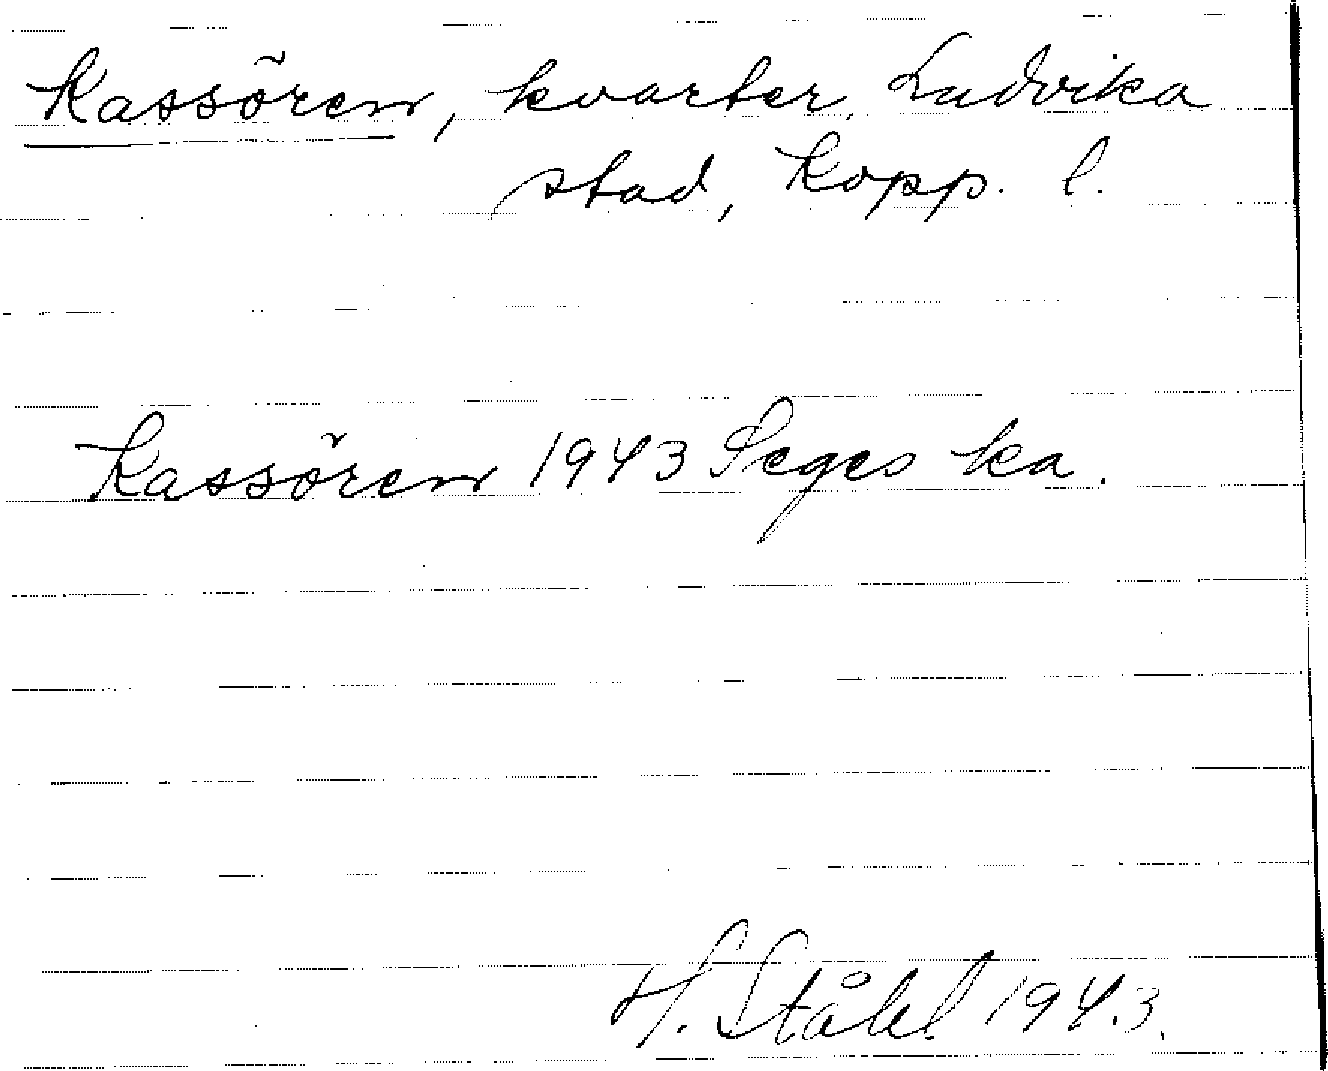 Kassören, kvarter, Ludvika
stad, Kopp. l.
Kassören 1943 Seges ka.
H. Ståhl 1943.